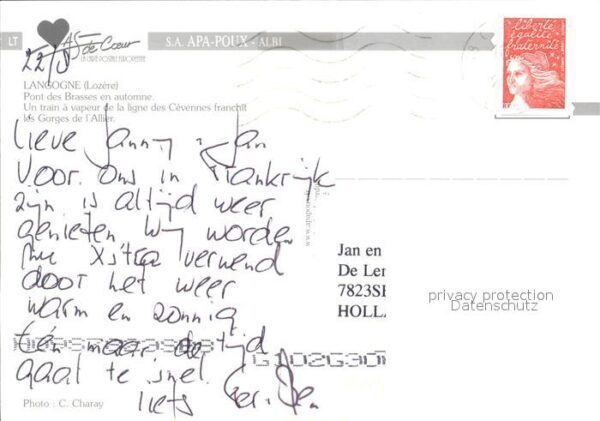 LT
AS de Cœur
LA CARTE POSTALE EUROPEENNE
S.A. APA-POUX - ALBI
liberté
égalité
fraternité
22/5
LANGOGNE (Lozère)
Pont des Brasses en automne.
Un train à vapeur de la ligne des Cévennes franchit
les Gorges de l'Allier.
Lieve Janny, Jan
Voor ons in Frankrijk
zijn is altijd weer
genieten Wij worden
nu Xstra verwend
door het weer
warm en zonnig
Eén maar de tijd
gaat te snel.
liefs Ger.
Jan en
De Ler
7823SE
HOLLA
privacy protection
Datenschutz
Photo : C. Charay